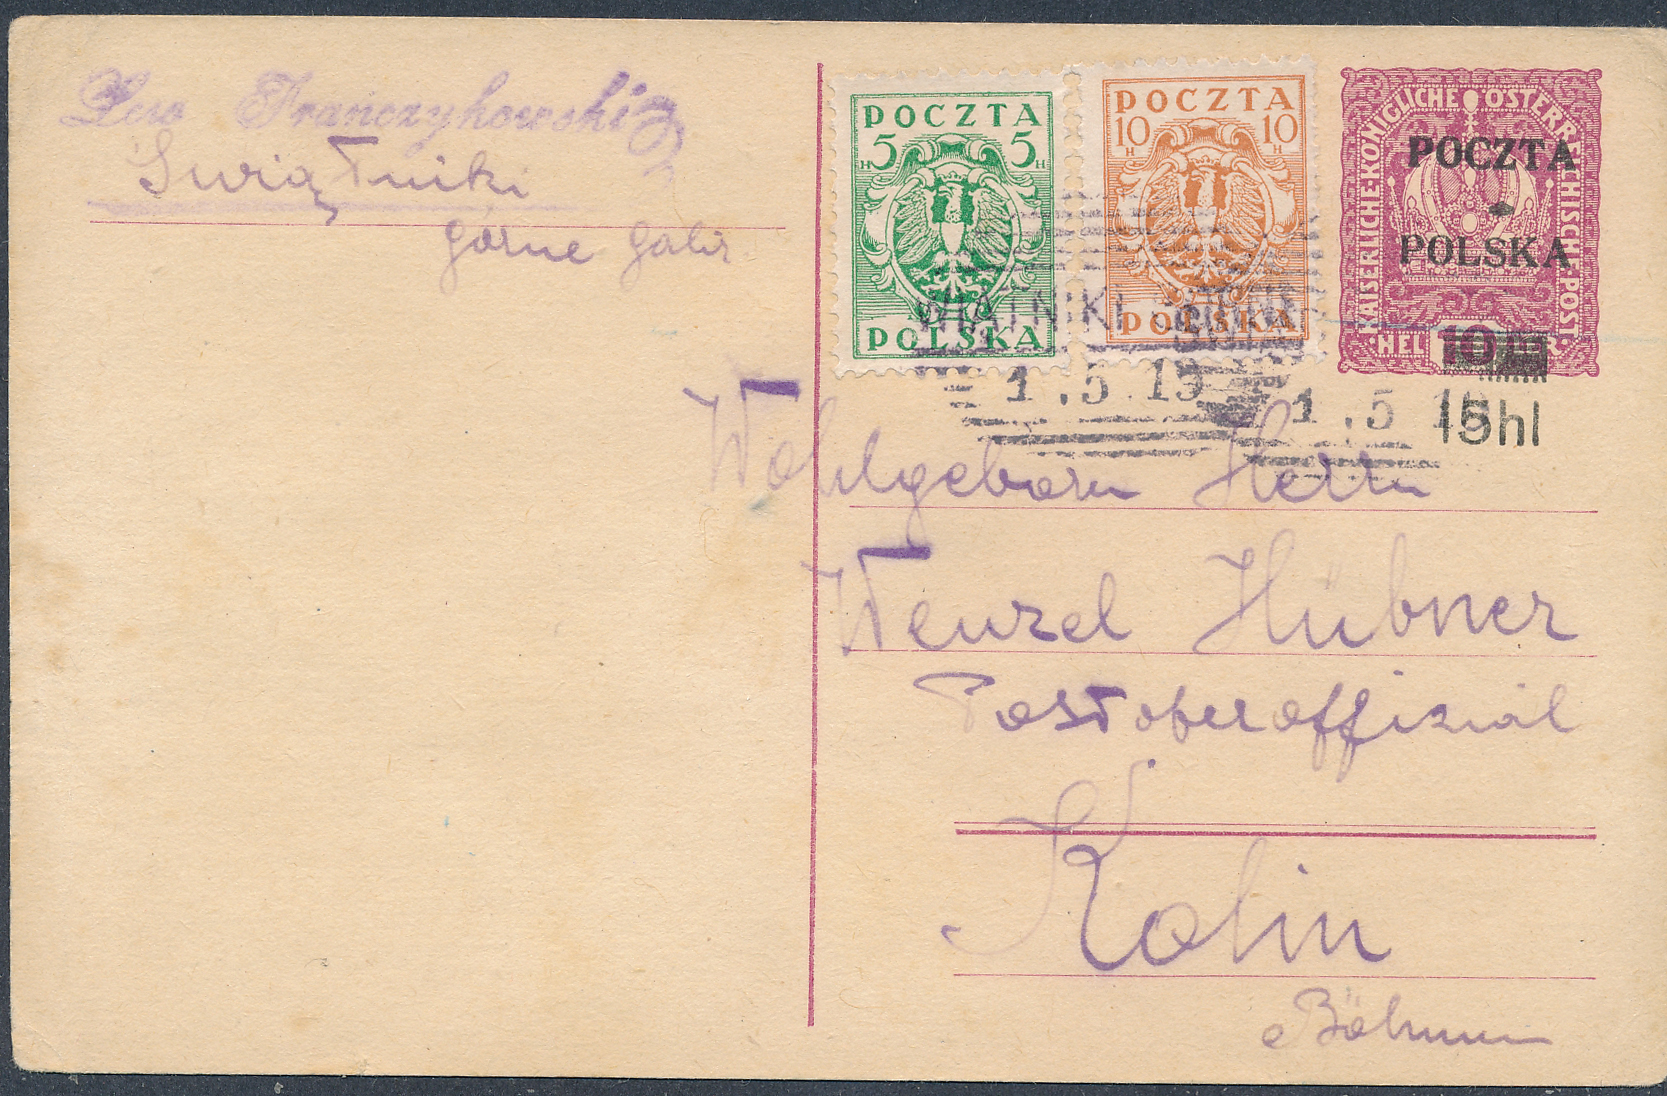 Lew Frańczykowski
Świątniki
górne Galiz
POCZTA
5 H 5 H
POLSKA
POCZTA
10 H 10 H
POLSKA
KAISERLICHE KÖNIGLICHE ÖSTERREICHISCHE POST
POCZTA
POLSKA
HEL 10
15hl
WIATNIKI
1.5 19
1.5 19
Wohlgeborn Herrn
Wenzel Hübner
Postoberoffizial
Kolin
Böhmen